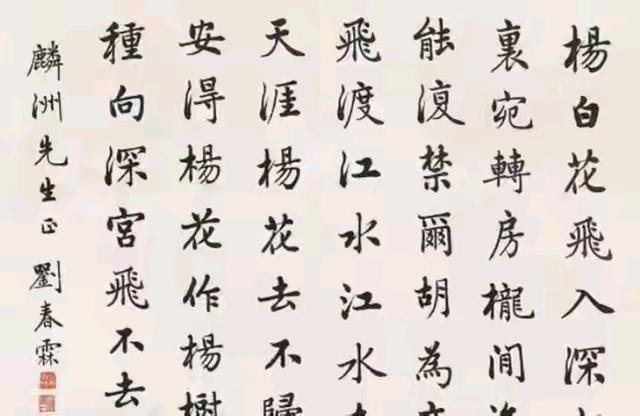 楊白花飛入深
裏宛轉房櫳間
能復禁爾胡為
飛渡江水江水
天涯楊花去不歸
安得楊花作楊樹
種向深宮飛不去
麟洲先生正 劉春霖